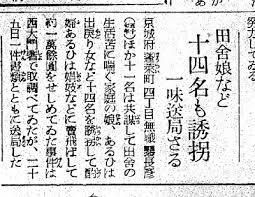 田舎娘など
十四名も誘拐
一味送局さる
京城府蓬萊町四丁目無職
ほか十一名は共謀して田舎の
生活苦に喘ぐ家庭の娘、あるひは
出戻り女など十四名を誘拐して酌
婦あるひは娼妓などに賣飛ばして
約一萬餘圓をせしめてゐた事件は
西大門署で取調べてゐたが、二十
五日一件書類とともに送局した